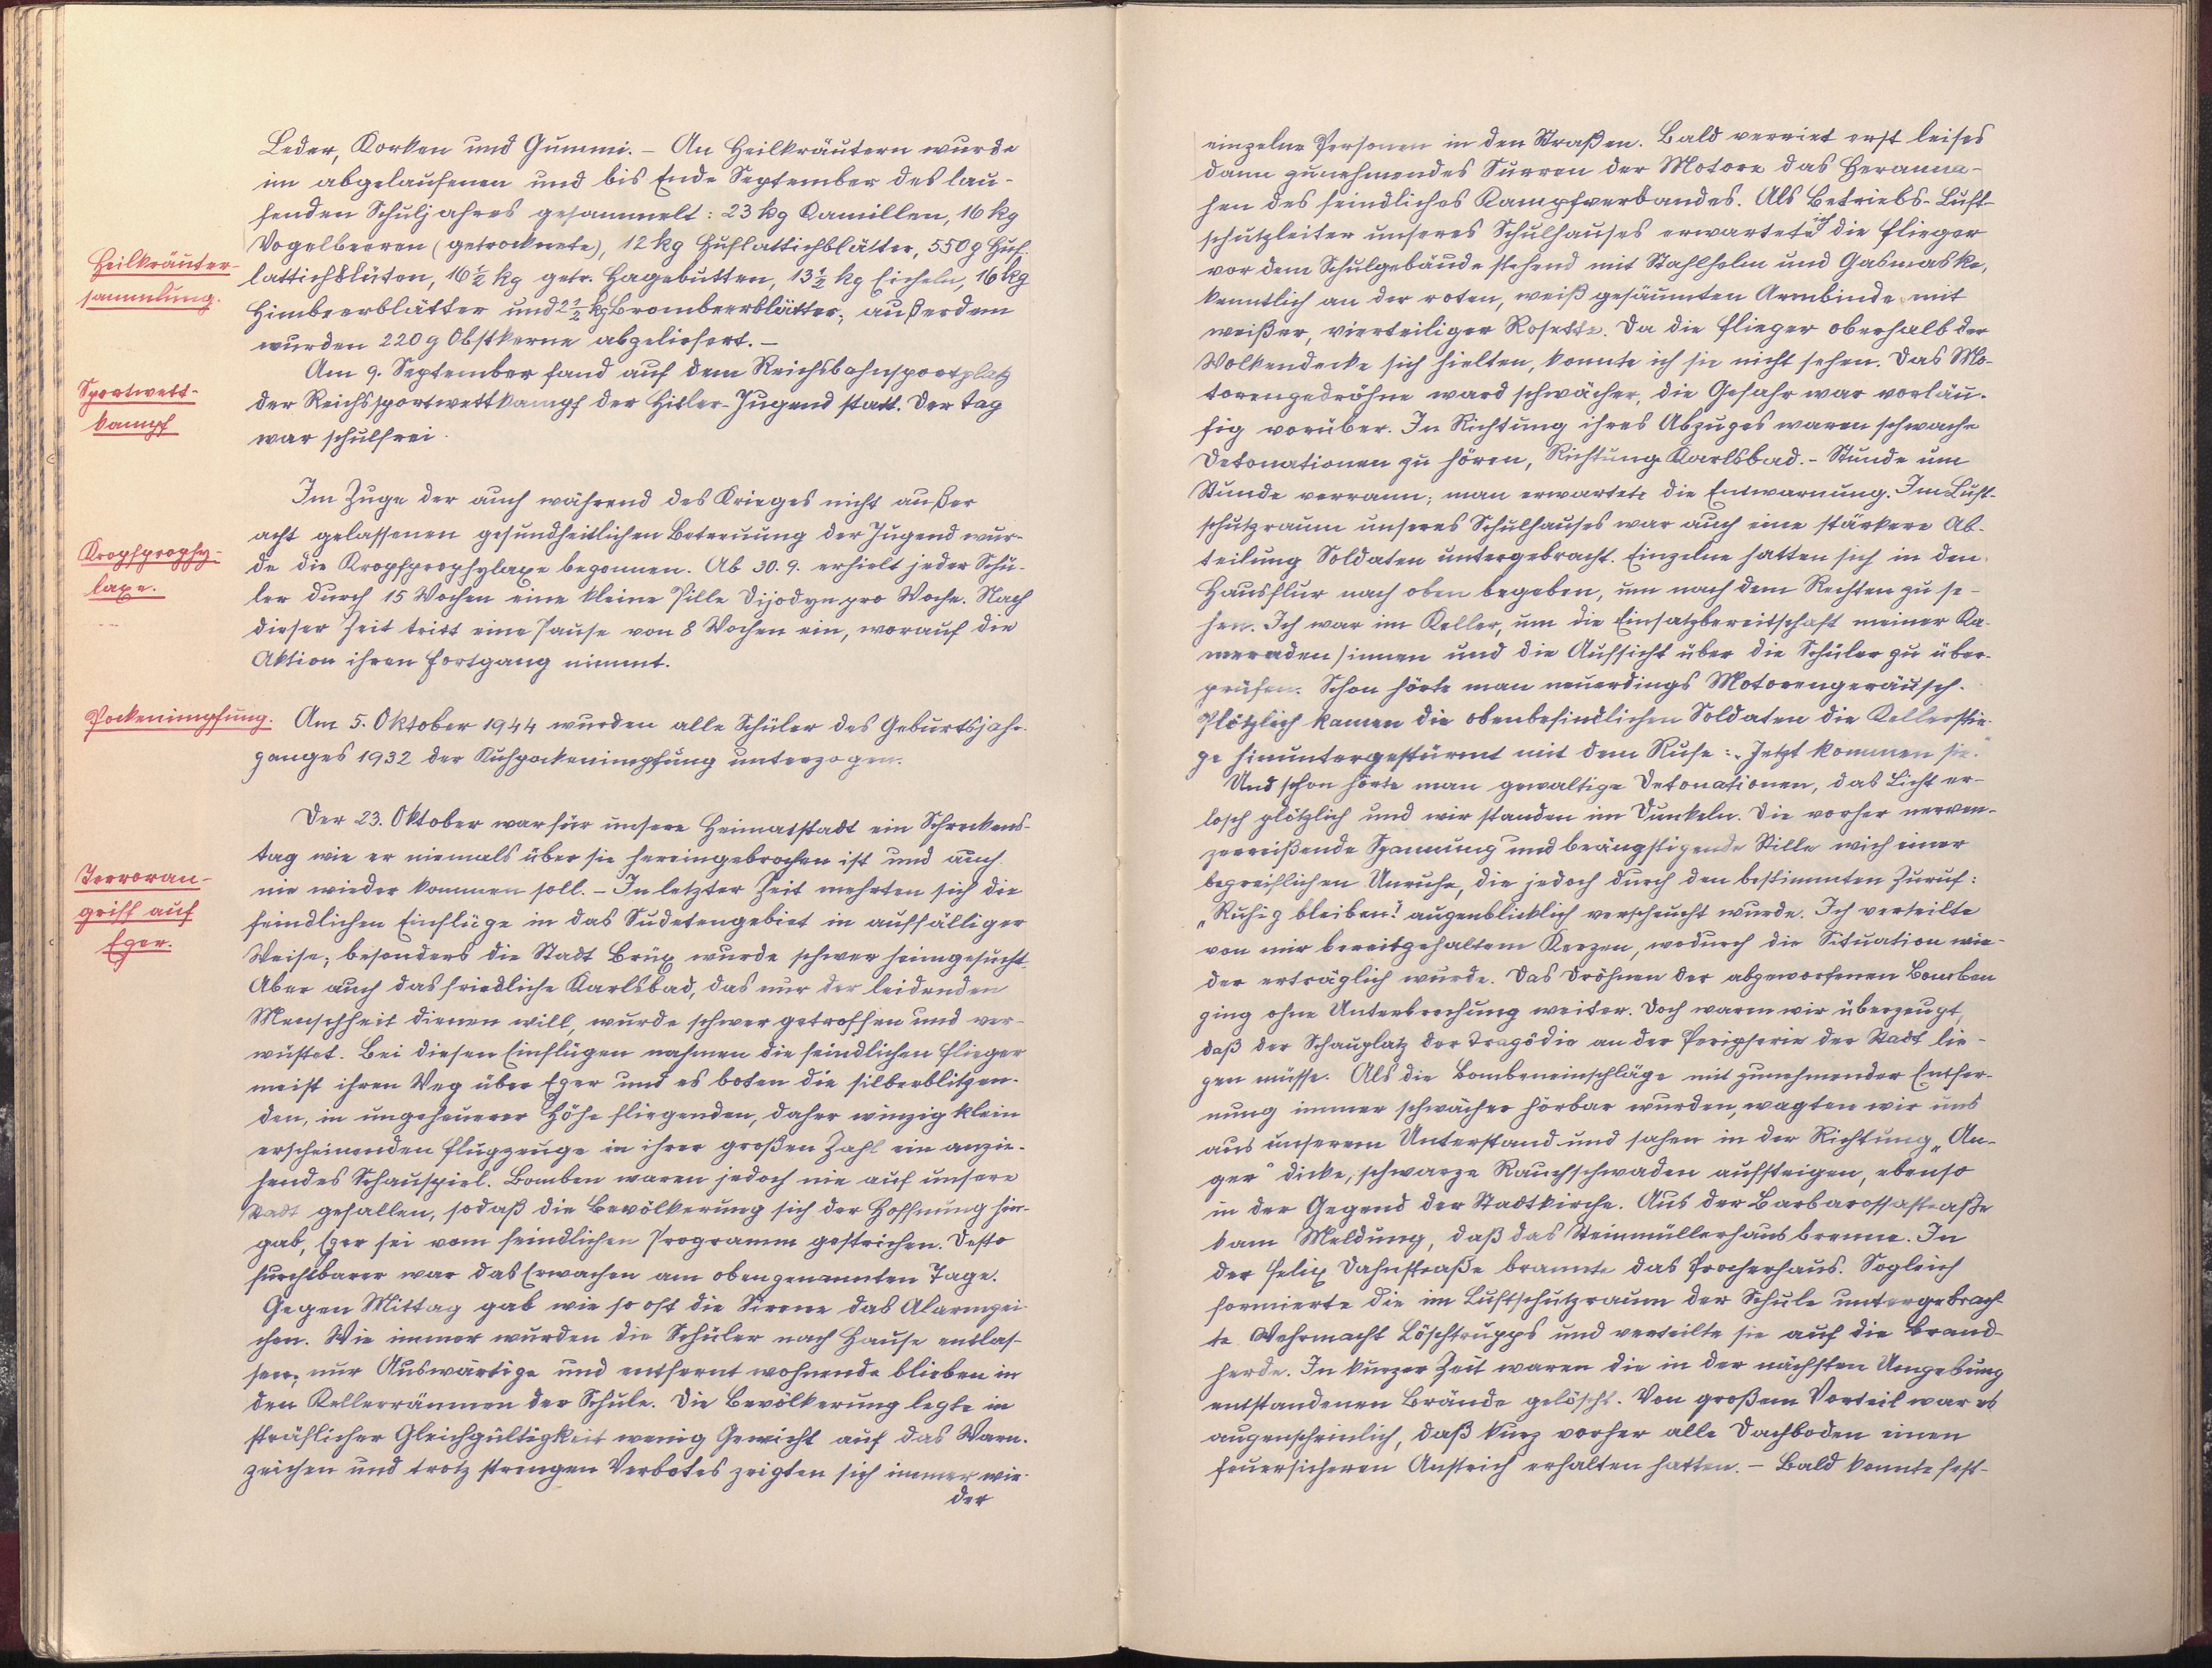 Leder, Korken und Gummi. – An Heilkräutern wurde
im abgelaufenen und bis Ende September des lau-
fenden Schuljahres gesammelt: 23 kg Kamillen, 16 kg
Vogelbeeren (getrocknete), 12 kg Huflattichblätter, 550 g Huf-
Heilkräuter-
sammlung.
lattichblüten, 16½ kg getr. Hagebutten, 13½ kg Eicheln, 16 kg
Himbeerblätter und 2½ kg Brombeerblätter; außerdem
wurden 220 g Obstkerne abgeliefert. –
Am 9. September fand auf dem Reichsbahnsportplatz
Sportwett-
kampf
der Reichssportwettkampf der Hitler-Jugend statt. Der Tag
war schulfrei.
Im Zuge der auch während des Krieges nicht außer
acht gelassenen gesundheitlichen Betreuung der Jugend wur-
Kropfprophy-
laxe.
de die Kropfprophylaxe begonnen. Ab 30. 9. erhielt jeder Schü-
ler durch 15 Wochen eine kleine Pille Dijodyn pro Woche. Nach
dieser Zeit tritt eine Pause von 8 Wochen ein, worauf die
Aktion ihren Fortgang nimmt.
Pockenimpfung.
Am 5. Oktober 1944 wurden alle Schüler des Geburtsjahr-
ganges 1932 der Kuhpockenimpfung unterzogen.
Der 23. Oktober war für unsere Heimatstadt ein Schreckens-
tag wie er niemals über sie hereingebrochen ist und auch
Terroran-
griff auf
Eger.
nie wieder kommen soll. – In letzter Zeit mehrten sich die
feindlichen Einflüge in das Sudetengebiet in auffälliger
Weise; besonders die Stadt Brüx wurde schwer heimgesucht.
Aber auch das friedliche Karlsbad, das nur der leidenden
Menschheit dienen will, wurde schwer getroffen und ver-
wüstet. Bei diesen Einflügen nahmen die feindlichen Flieger
meist ihren Weg über Eger und es boten die silberblitzen-
den, in ungeheuerer Höhe fliegenden, daher winzig klein
erscheinenden Flugzeuge in ihrer großen Zahl ein anzie-
hendes Schauspiel. Bomben waren jedoch nie auf unsere
Stadt gefallen, sodaß die Bevölkerung sich der Hoffnung hin-
gab, Eger sei vom feindlichen Programm gestrichen. Desto
furchtbarer war das Erwachen am obengenannten Tage.
Gegen Mittag gab wie so oft die Sirene das Alarmzei-
chen. Wie immer wurden die Schüler nach Hause entlas-
sen, nur Auswärtige und entfernt wohnende blieben in
den Kellerräumen der Schule. Die Bevölkerung legte in
sträflicher Gleichgültigkeit wenig Gewicht auf das Warn-
zeichen und trotz strengen Verbotes zeigten sich immer wie-
der
einzelne Personen in den Straßen. Bald verriet erst leises
dann zunehmendes Surren der Motore das Heranna-
hen des feindliches Kampfverbandes. Als Betriebs-Luft-
schutzleiter unseres Schulhauses erwartete ich die Flieger
vor dem Schulgebäude stehend mit Stahlhelm und Gasmaske,
kenntlich an der roten, weiß gesäumten Armbinde mit
weißer, vierteiliger Rosette. Da die Flieger oberhalb der
Wolkendecke sich hielten, konnte ich sie nicht sehen. Das Mo-
torengedröhne ward schwächer, die Gefahr war vorläu-
fig vorüber. In Richtung ihres Abzuges waren schwache
Detonationen zu hören, Richtung Karlsbad. – Stunde um
Stunde verrann; man erwartete die Entwarnung. Im Luft-
schutzraum unseres Schulhauses war auch eine stärkere Ab-
teilung Soldaten untergebracht. Einzelne hatten sich in den
Hausflur nach oben begeben, um nach dem Rechten zu se-
hen. Ich war im Keller, um die Einsatzbereitschaft meiner Ka-
meraden/innen und die Aufsicht über die Schüler zu über-
prüfen. Schon hörte man neuerdings Motorengeräusch.
Plötzlich kamen die obenbefindlichen Soldaten die Kellerstie-
ge hinuntergestürmt mit dem Rufe: „Jetzt kommen sie."
Und schon hörte man gewaltige Detonationen, das Licht er-
losch plötzlich und wir standen im Dunkeln. Die vorher nerven-
zerreißende Spannung und beängstigende Stille wich einer
begreiflichen Unruhe, die jedoch durch den bestimmten Zuruf:
„Ruhig bleiben!" augenblicklich verscheucht wurde. Ich verteilte
von mir bereitgehaltenen Kerzen, wodurch die Situation wie-
der erträglich wurde. Das Dröhnen der abgeworfenen Bomben
ging ohne Unterbrechung weiter. Doch waren wir überzeugt,
daß der Schauplatz der Tragödie an der Peripherie der Stadt lie-
gen müsse. Als die Bombeneinschläge mit zunehmender Entfer-
nung immer schwächer hörbar wurden, wagten wir uns
aus unserem Unterstand und sahen in der Richtung „An-
ger" dicke, schwarze Rauchschwaden aufsteigen, ebenso
in der Gegend der Stadtkirche. Aus der Barbarossastraße
kam Meldung, daß das Steinmüllerhaus brenne. In
der Felix Dahnstraße brannte das Procherhaus. Sogleich
formierte die im Luftschutzraum der Schule untergebrach-
te Wehrmacht Löschtrupps und verteilte sie auf die Brand-
herde. In kurzer Zeit waren die in der nächsten Umgebung
entstandenen Brände gelöscht. Von großem Vorteil war es
augenscheinlich, daß kurz vorher alle Dachboden einen
feuersicheren Anstrich erhalten hatten. – Bald konnte fest-